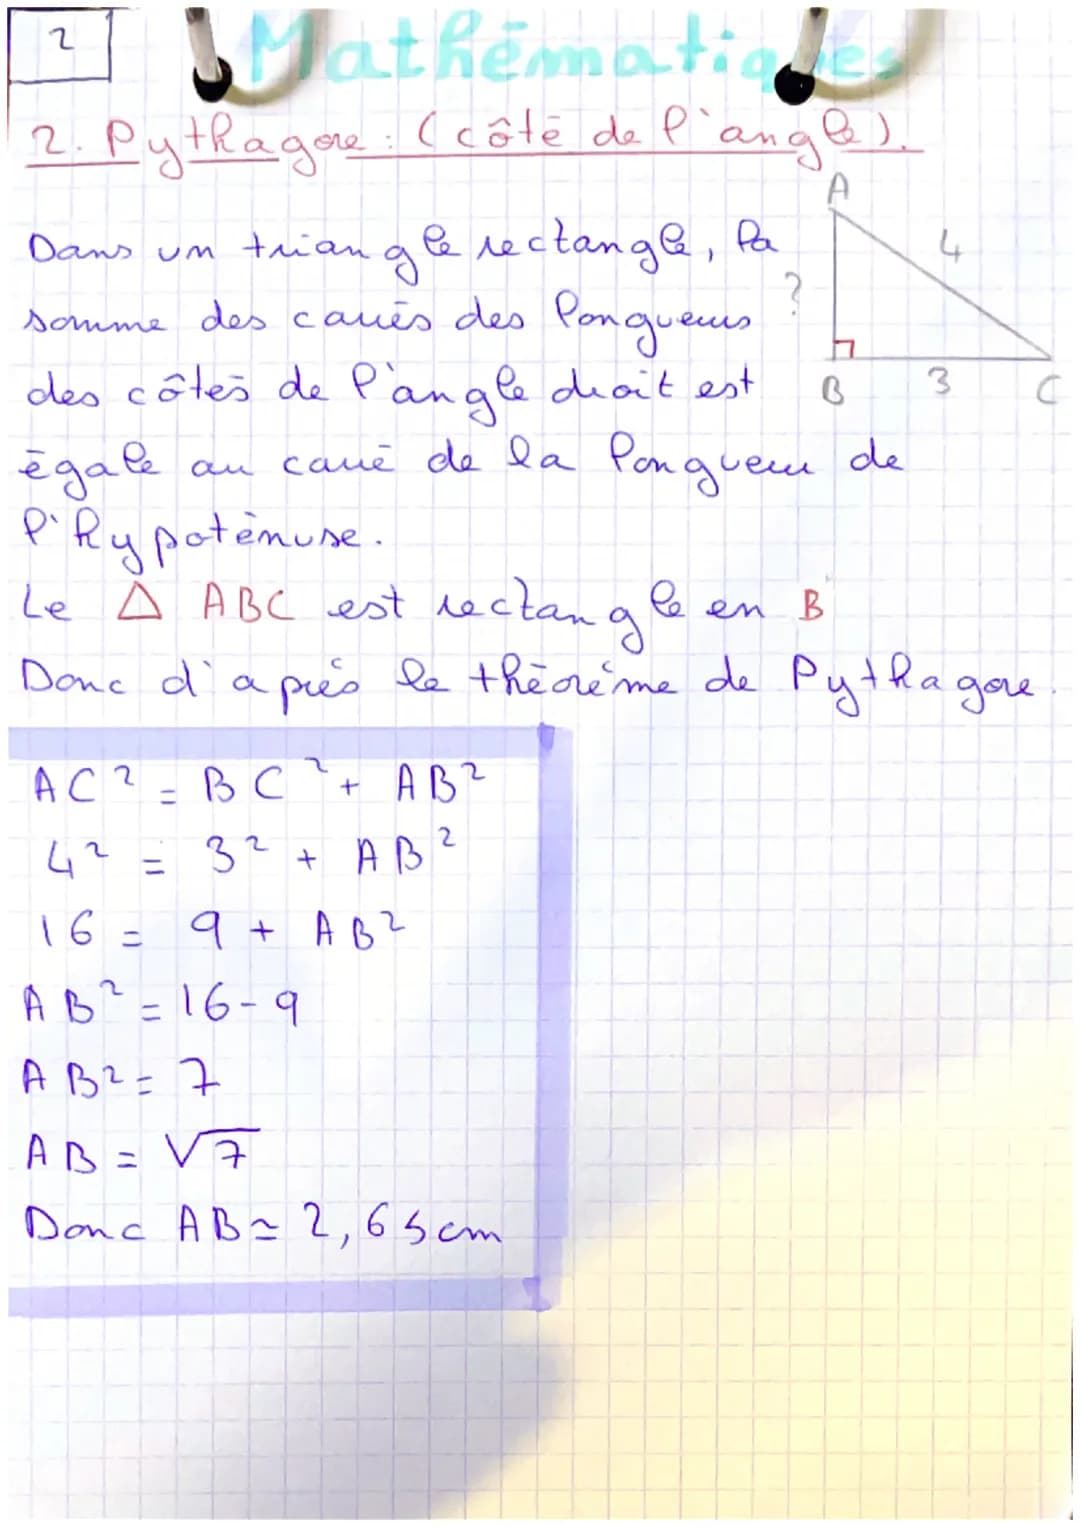 2
Mathématiques
2. Pythagore : (côté de l'angle).
A
Dans un triangle rectangle, la
4
somme des carrés des longueurs
?
des côtés de l'angle droit est
B 3 C
égale au carré de la longueur de
l'hypoténuse.
Le Δ ABC est rectangle en B
Donc d'après le théorème de Pythagore.
AC² = BC² + AB²
4² = 3² + AB²
16 = 9 + AB²
AB² = 16 - 9
AB² = 7
AB = √7
Donc AB ≃ 2,65cm